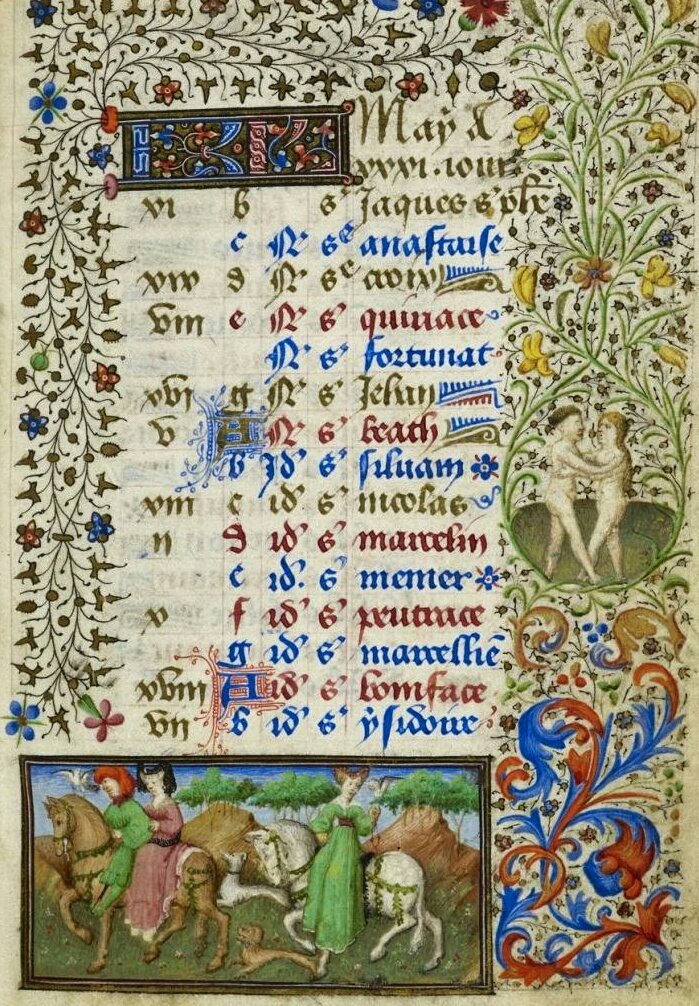 KL May a
xxxi. iour
xi b s' Jaques s' phe
c N se anastaise
xix d N se croix
viii e N s' quiriace
N s' fortunat
xvi g N s' Jehan
v A N s' beath
b id s' siluain
xiii c id s' nicolas
ii d id s' marcelin
e id. s' memer
x f id s' peutrace
g id s' marcellie
xviii A id s' boniface
vii b id s' ysidoire